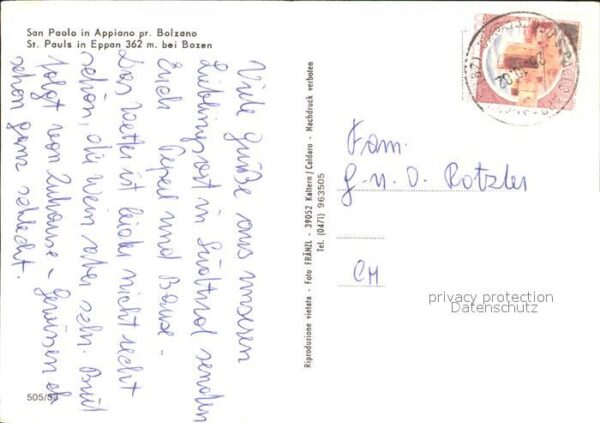 San Paolo in Appiano pr. Bolzano
St. Pauls in Eppan 362 m. bei Bozen
Viele Grüße aus unserem
Lieblingsort in Südtirol senden
Euch
und
Das Wetter ist leider nicht recht
schön, die Wein aber sehr.
folgt von Zuhause - Gewissen ist
schon ganz schlecht.
505/53
Riproduzione vietata - Foto FRÄNZL - 39052 Kaltern/Caldaro - Nachdruck verboten
Tel. (0471) 963505
Fam.
G. u. O. Rotzler
CH
privacy protection
Datenschutz